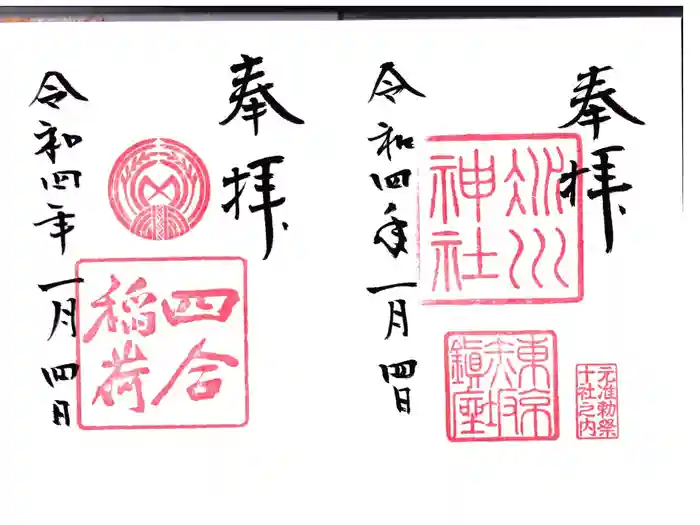 奉拝
氷川神社
東京赤坂鎮座
元准勅祭
十社之内
令和四年一月四日
奉拝
四合稲荷
令和四年一月四日